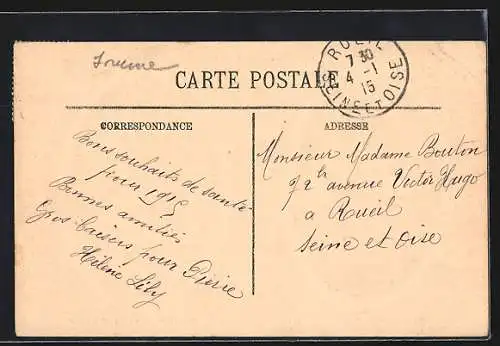 RUEIL
7 30
4 - 1
15
SEINE ET OISE
CARTE POSTALE
CORRESPONDANCE
ADRESSE
Bons souhaits de santé
pour 1915
Bonnes amitiés
Gros baisers pour Pierre
Hélène Lily
Monsieur Madame Bouton
72 avenue Victor Hugo
a Rueil
Seine et Oise